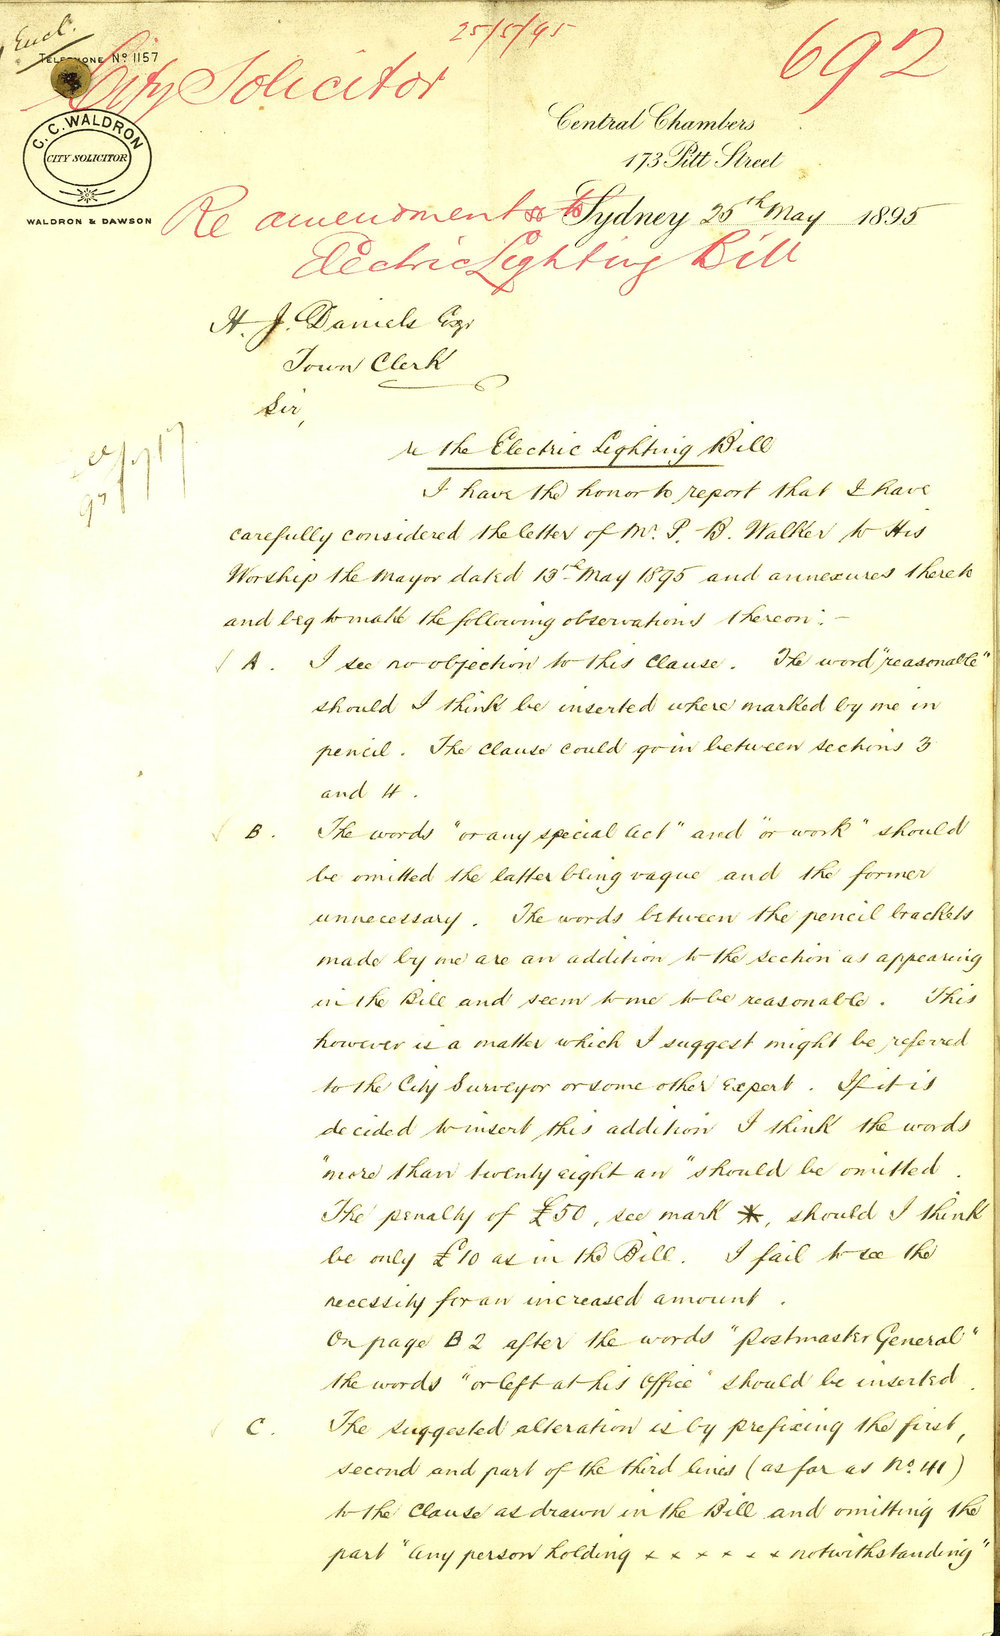 Encl.
25/5/95
692
TELEPHONE Nº 1157
City Solicitor
C. C. WALDRON
CITY SOLICITOR
WALDRON & DAWSON
Central Chambers
173 Pitt Street
Sydney 25th May 1895
Re amendments to
Electric Lighting Bill
H. J. Daniels Esqr
Town Clerk
Sir,
re the Electric Lighting Bill
I have the honor to report that I have
carefully considered the letter of Mr. P. B. Walker to His
Worship the Mayor dated 13th May 1895 and annexures thereto
and beg to make the following observations thereon :-
A. I see no objection to this clause. The word "reasonable"
should I think be inserted where marked by me in
pencil. The clause could go in between sections 3
and 4.
B. The words "or any special act" and "or work" should
be omitted the latter being vague and the former
unnecessary. The words between the pencil brackets
made by me are an addition to the section as appearing
in the Bill and seem to me to be reasonable. This
however is a matter which I suggest might be referred
to the City Surveyor or some other expert. If it is
decided to insert this addition I think the words
"more than twenty eight an" should be omitted.
The penalty of £50, see mark *, should I think
be only £10 as in the Bill. I fail to see the
necessity for an increased amount.
On page B2 after the words "Postmaster General"
the words "or left at his Office" should be inserted.
C. The suggested alteration is by prefixing the first,
second and part of the third lines (as far as No. 41)
to the Clause as drawn in the Bill and omitting the
part "Any person holding x x x x x x notwithstanding"